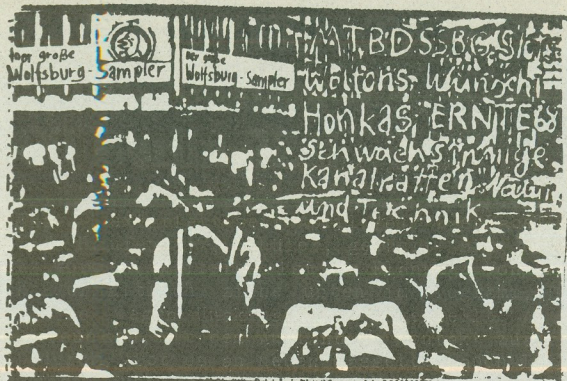 der große
Wolfsburg-Sampler
der große
Wolfsburg-Sampler
M.T.B.D.S.S.B.G.S.
Waltons, Wünschi
Honkas, ERNTE 68
Schwachsinnige
Kanalratten, Natur
und Technik